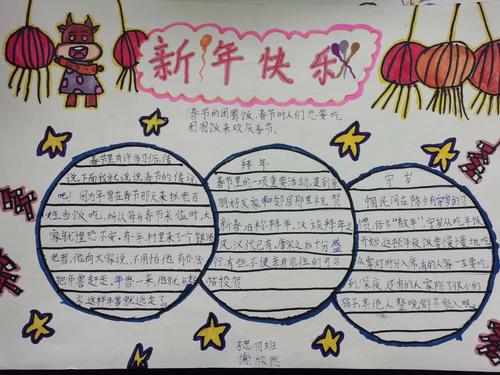 新年快乐
春节的团圆饭,春节时人们总要吃
团圆饭来欢庆春节。
春节里有许多习俗,传
说,下面我就说说春节的传说
吧!因为年兽在春节那天来抓老百
姓当饭吃,所以每当春节来临时,大
家就惶恐不安,有一年村里来了个银发
老者,他向大家说,不用怕他有办法
把年兽赶走,年兽一来,他就
火,这样年兽就逃走了。
拜年
春节里的一项重要活动,是到亲
朋好友家和邻居那里祝贺
新春旧称拜年,汉族拜年之
风,汉代已有,唐宋之后十分盛
行,有些不便亲身前往的可
帖投贺
守岁
我国民间在除夕有守岁的习
惯,俗名"熬年",守岁从吃年饭
开始,这顿年夜饭要慢慢地吃
从掌灯时分入席,有的人家一直要吃
到深夜,还有的人家除了很小的
孩子,其他人整晚都不能入眠
四班
谢欣然